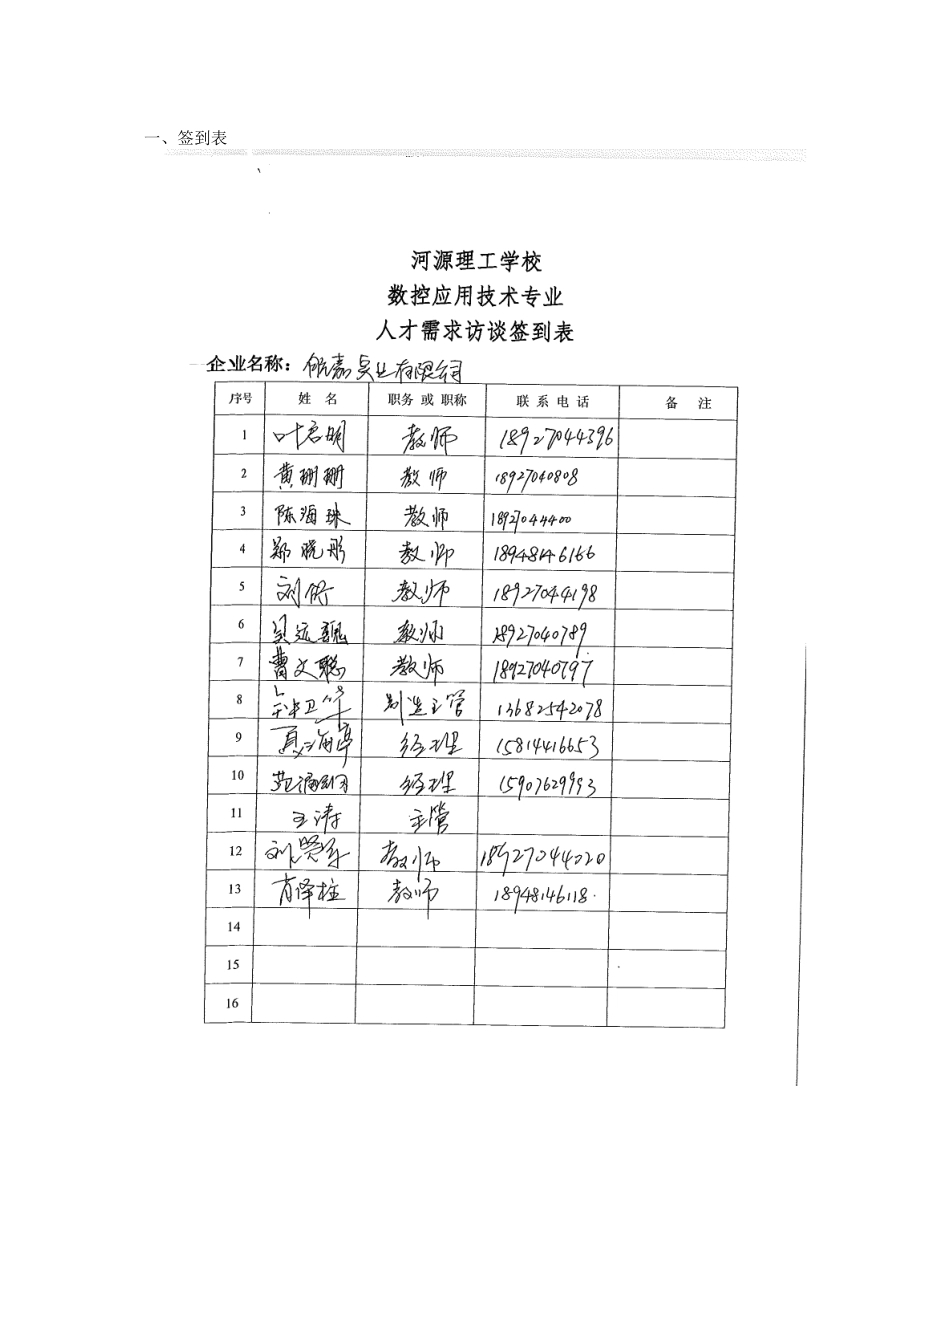 一、签到表
河源理工学校
数控应用技术专业
人才需求访谈签到表
企业名称： 有限公司
序号 姓 名 职务 或 职称 联 系 电 话 备 注
1 叶君明 教师 18927044396
2 黄珊珊 教师 18927040808
3 陈海珠 教师 18927044400
4 郑晓彤 教师 18948146166
5 刘 教师 18927044198
6 吴远 教师 18927040789
7 曹文聪 教师 18927040797
8 制造主管 13682542078
9 夏海 经理 15814416653
10 范 经理 15907629993
11 王涛 主管
12 刘 教师 18927044020
13 肖泽柱 教师 18948146118.
14
15
16